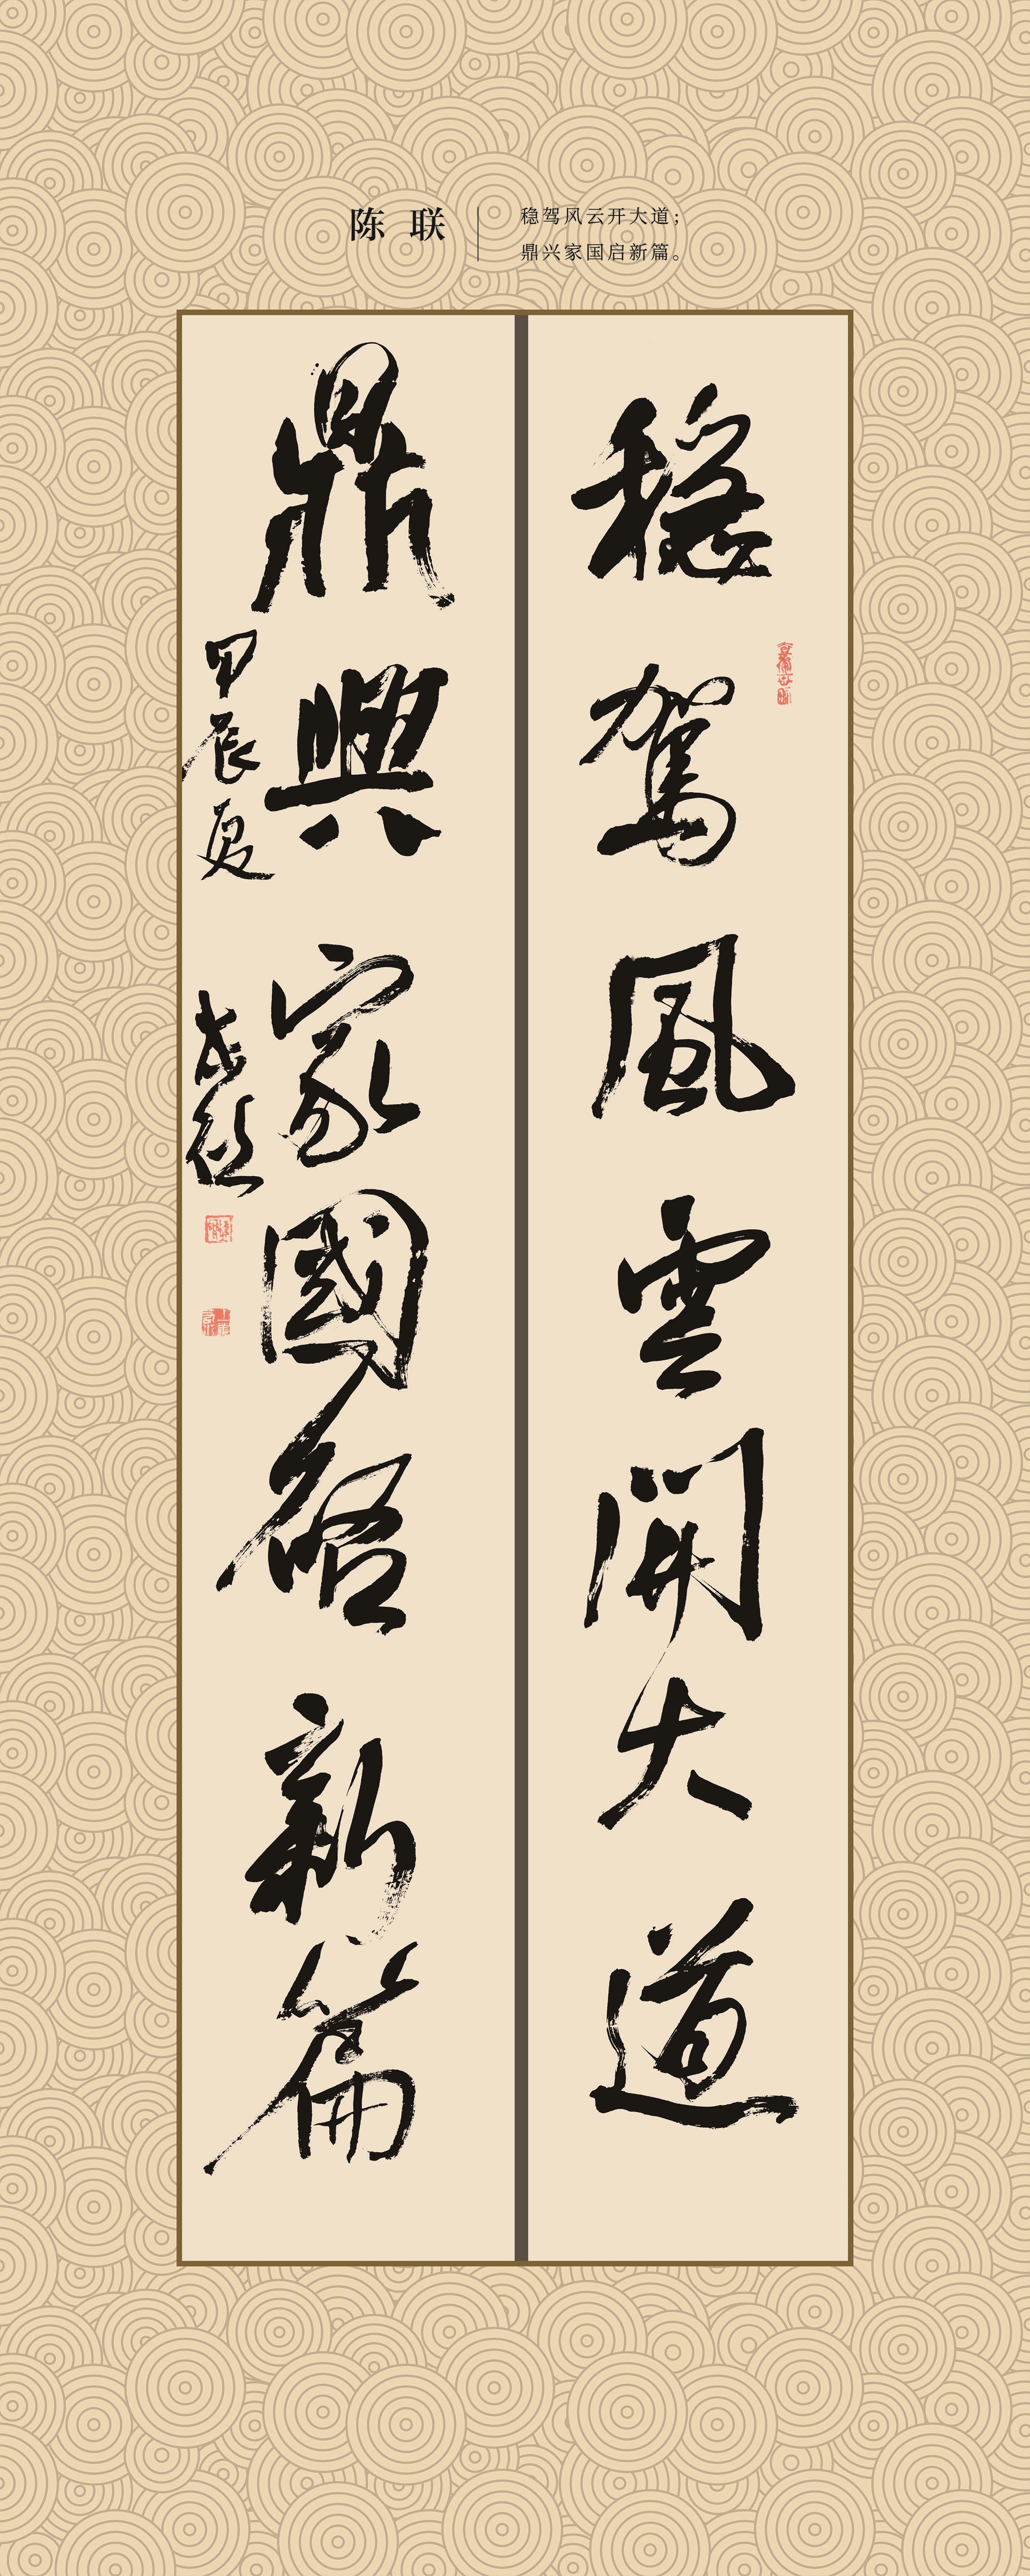 陈 联
稳驾风云开大道；
鼎兴家国启新篇。
穩駕風雲開大道
鼎興家國啓新篇
甲辰夏